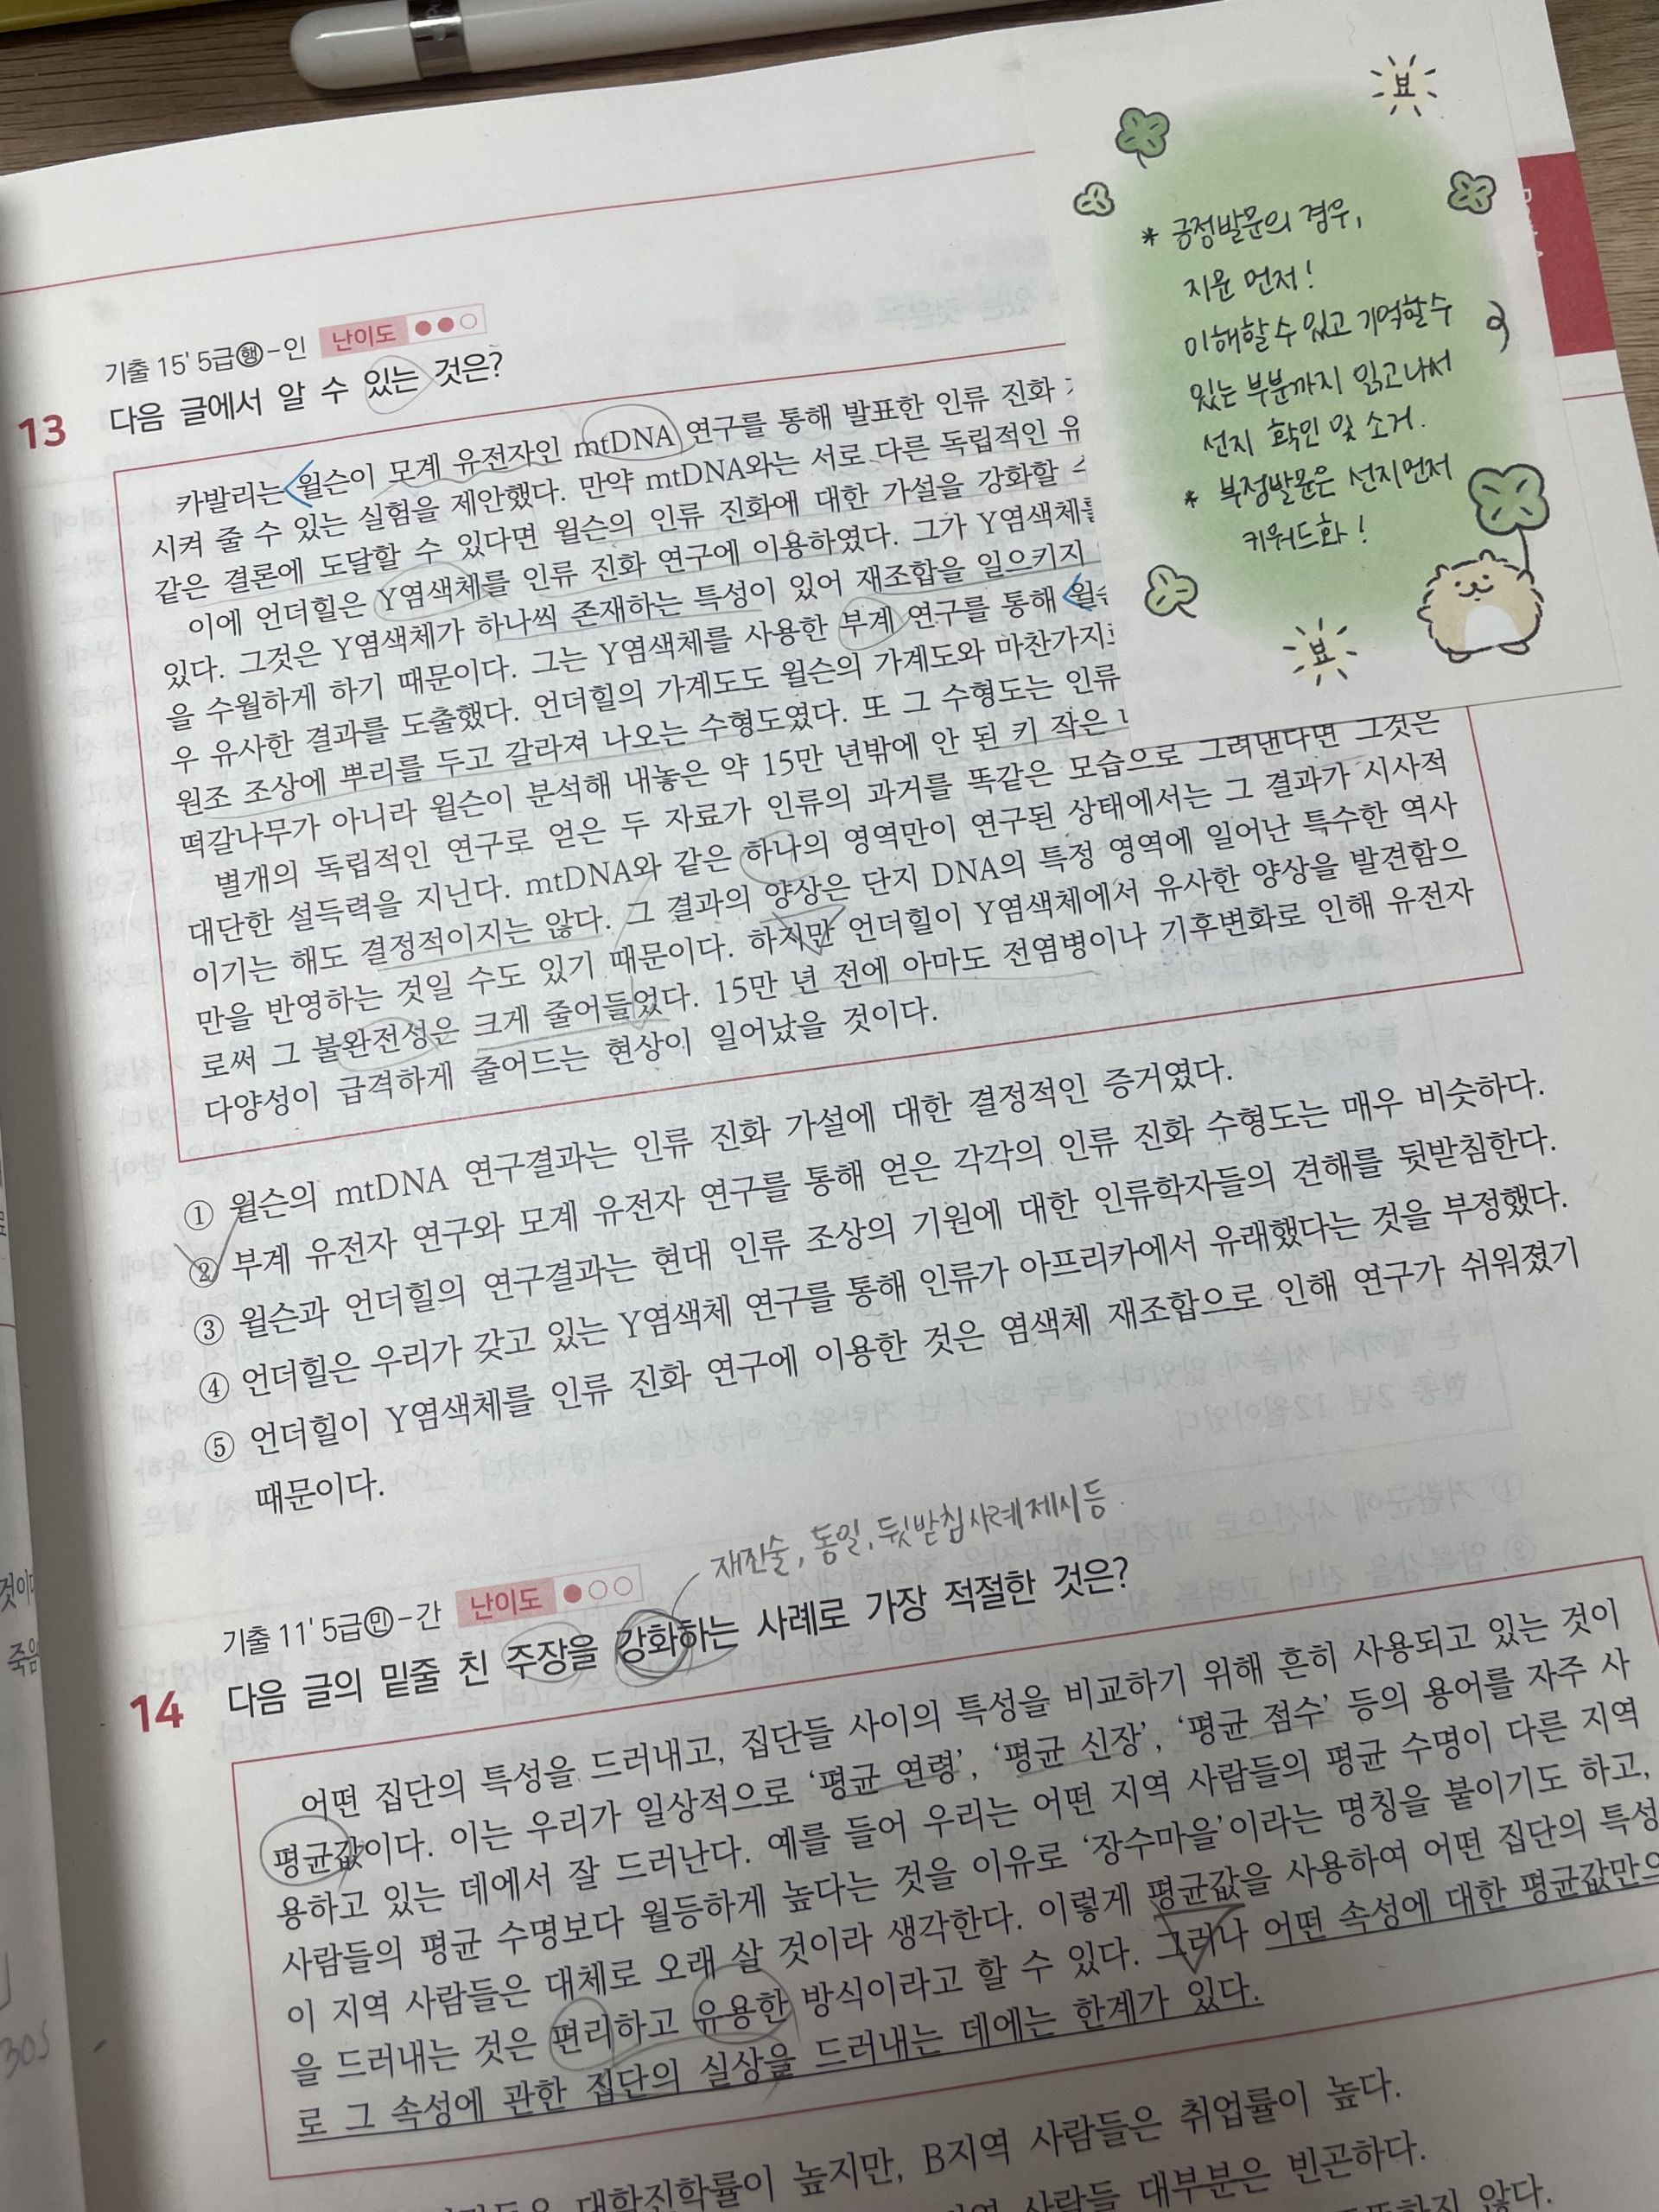 뵤
* 긍정발문의 경우,
지문 먼저!
이해할 수 있고 기억할 수
있는 부분까지 읽고나서
선지 확인 및 소거.
* 부정발문은 선지먼저
키워드화!
뵤
기출 15' 5급㉻-인 난이도 ●●○
13 다음 글에서 알 수 있는 것은?
카발리는 윌슨이 모계 유전자인 mtDNA 연구를 통해 발표한 인류 진화
시켜 줄 수 있는 실험을 제안했다. 만약 mtDNA와는 서로 다른 독립적인 유
같은 결론에 도달할 수 있다면 윌슨의 인류 진화에 대한 가설을 강화할
이에 언더힐은 Y염색체를 인류 진화 연구에 이용하였다. 그가 Y염색체를
있다. 그것은 Y염색체가 하나씩 존재하는 특성이 있어 재조합을 일으키지
을 수월하게 하기 때문이다. 그는 Y염색체를 사용한 부계 연구를 통해 윌슨
우 유사한 결과를 도출했다. 언더힐의 가계도도 윌슨의 가계도와 마찬가지
원조 조상에 뿌리를 두고 갈라져 나오는 수형도였다. 또 그 수형도는 인류
떡갈나무가 아니라 윌슨이 분석해 내놓은 약 15만 년밖에 안 된 키 작은
별개의 독립적인 연구로 얻은 두 자료가 인류의 과거를 똑같은 모습으로 그려낸다면 그것은
대단한 설득력을 지닌다. mtDNA와 같은 하나의 영역만이 연구된 상태에서는 그 결과가 시사적
이기는 해도 결정적이지는 않다. 그 결과의 양상은 단지 DNA의 특정 영역에 일어난 특수한 역사
만을 반영하는 것일 수도 있기 때문이다. 하지만 언더힐이 Y염색체에서 유사한 양상을 발견함으
로써 그 불완전성은 크게 줄어들었다. 15만 년 전에 아마도 전염병이나 기후변화로 인해 유전자
다양성이 급격하게 줄어드는 현상이 일어났을 것이다.
① 윌슨의 mtDNA 연구결과는 인류 진화 가설에 대한 결정적인 증거였다.
② 부계 유전자 연구와 모계 유전자 연구를 통해 얻은 각각의 인류 진화 수형도는 매우 비슷하다.
③ 윌슨과 언더힐의 연구결과는 현대 인류 조상의 기원에 대한 인류학자들의 견해를 뒷받침한다.
④ 언더힐은 우리가 갖고 있는 Y염색체 연구를 통해 인류가 아프리카에서 유래했다는 것을 부정했다.
⑤ 언더힐이 Y염색체를 인류 진화 연구에 이용한 것은 염색체 재조합으로 인해 연구가 쉬워졌기
때문이다.
재진술, 동일, 뒷받침사례제시 등
기출 11' 5급㉺-간 난이도 ●○○
14 다음 글의 밑줄 친 주장을 강화하는 사례로 가장 적절한 것은?
어떤 집단의 특성을 드러내고, 집단들 사이의 특성을 비교하기 위해 흔히 사용되고 있는 것이
평균값이다. 이는 우리가 일상적으로 '평균 연령', '평균 신장', '평균 점수' 등의 용어를 자주 사
용하고 있는 데에서 잘 드러난다. 예를 들어 우리는 어떤 지역 사람들의 평균 수명이 다른 지역
사람들의 평균 수명보다 월등하게 높다는 것을 이유로 '장수마을'이라는 명칭을 붙이기도 하고,
이 지역 사람들은 대체로 오래 살 것이라 생각한다. 이렇게 평균값을 사용하여 어떤 집단의 특성
을 드러내는 것은 편리하고 유용한 방식이라고 할 수 있다. 그러나 어떤 속성에 대한 평균값만으
로 그 속성에 관한 집단의 실상을 드러내는 데에는 한계가 있다.
높지만, B지역 사람들은 취업률이 높다.
대학진학률이 사람들 대부분은 빈곤하다.
않다.
것이다
죽음
305